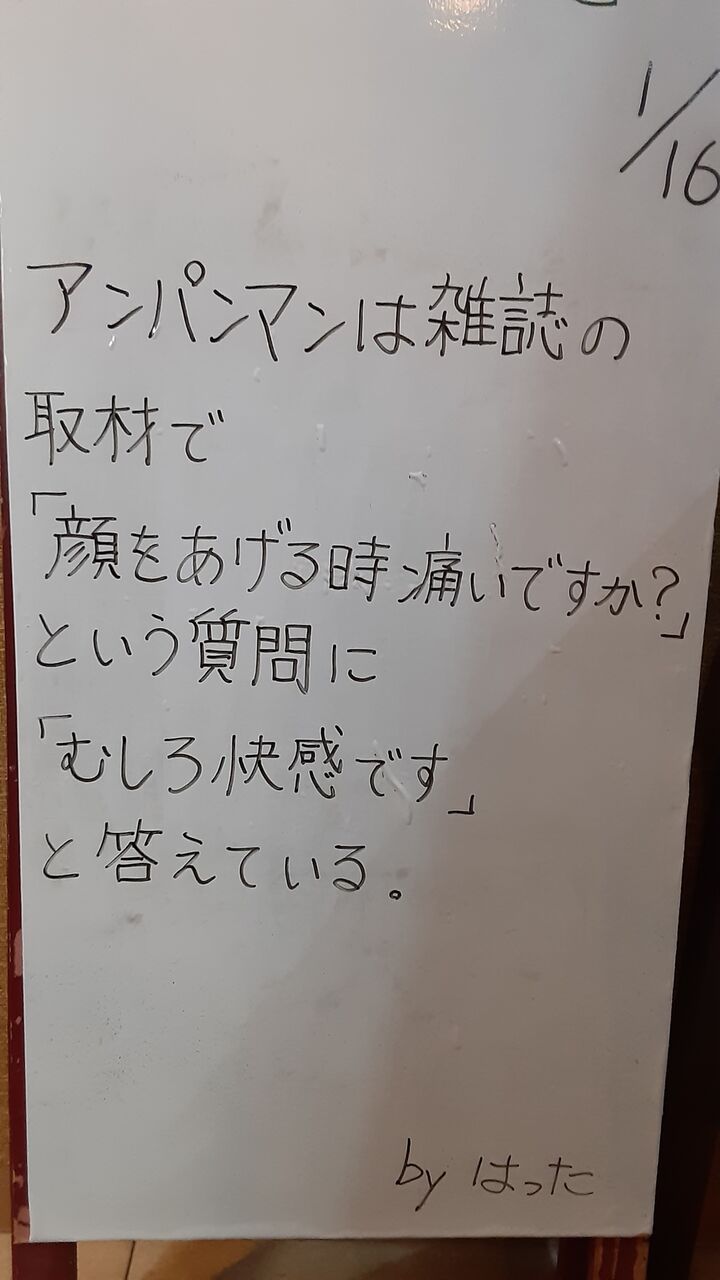 1/16
アンパンマンは雑誌の
取材で
「顔をあげる時痛いですか?」
という質問に
「むしろ快感です」
と答えている。
by はった